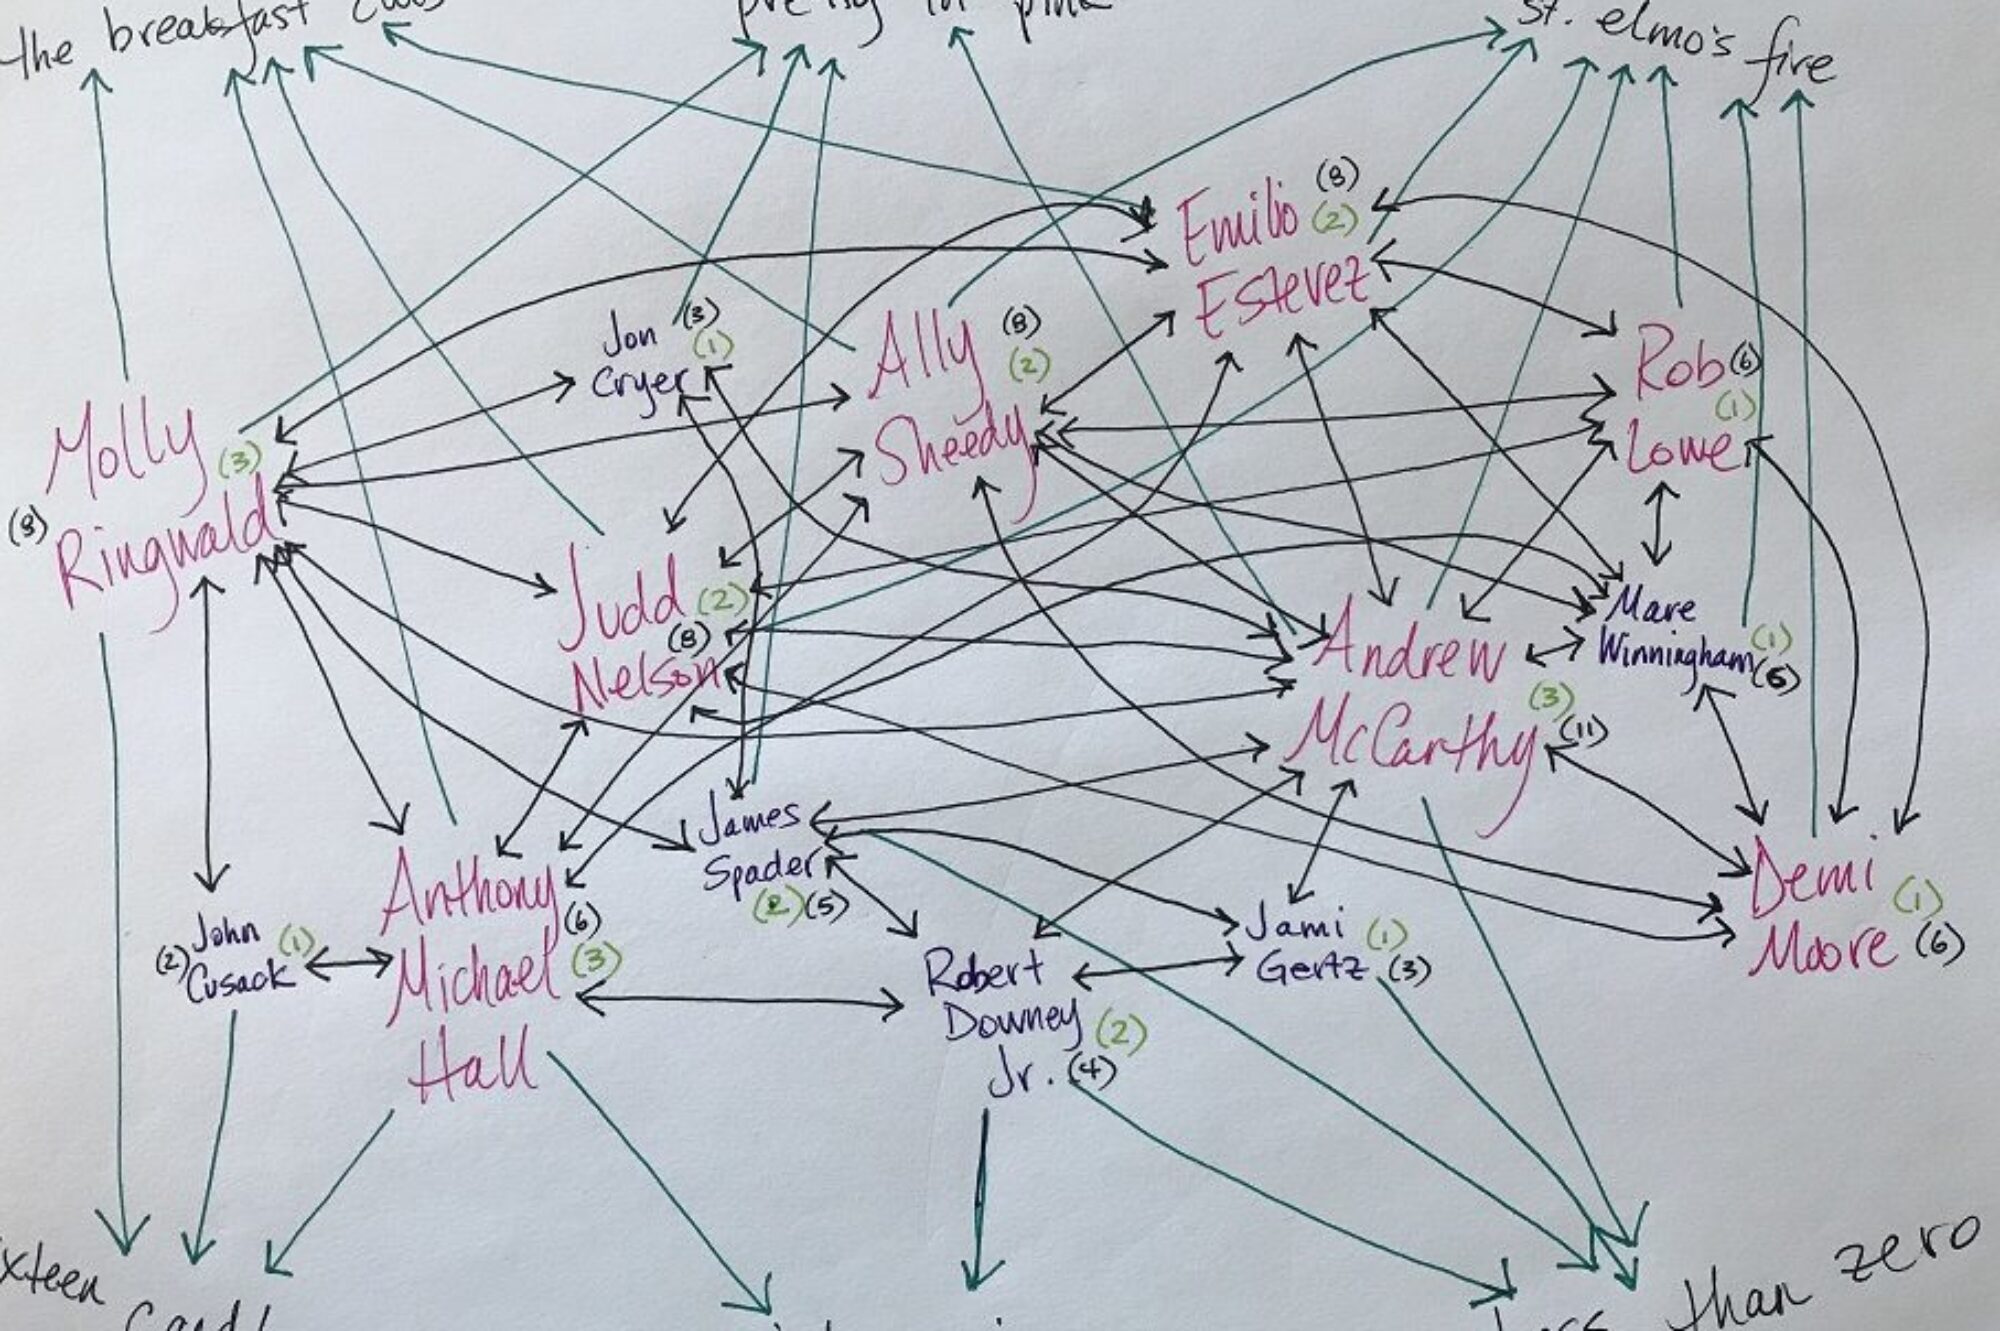 the breakfast
pretty in pink
st. elmo's fire
Emilio (8)
Estevez (2)
Jon (3)
Cryer (1)
Ally (8)
Sheedy (2)
Rob (6)
Lowe (1)
Molly (3)
(8) Ringwald
Judd (2)
(8)
Nelson
Mare
Winningham (1)
(6)
Andrew
McCarthy (3)
(11)
James
Spader
(2) (5)
Anthony (6)
Michael (3)
Hall
John (1)
(2) Cusack
Jami (1)
Gertz (3)
Robert
Downey (2)
Jr. (4)
Demi (1)
Moore (6)
than zero